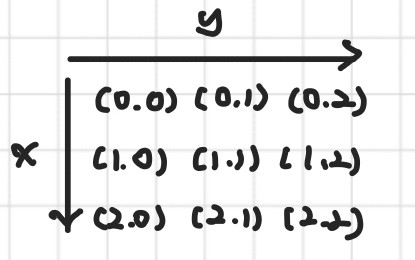 y
(0.0) (0.1) (0.2)
x (1.0) (1.1) (1.2)
(2.0) (2.1) (2.2)